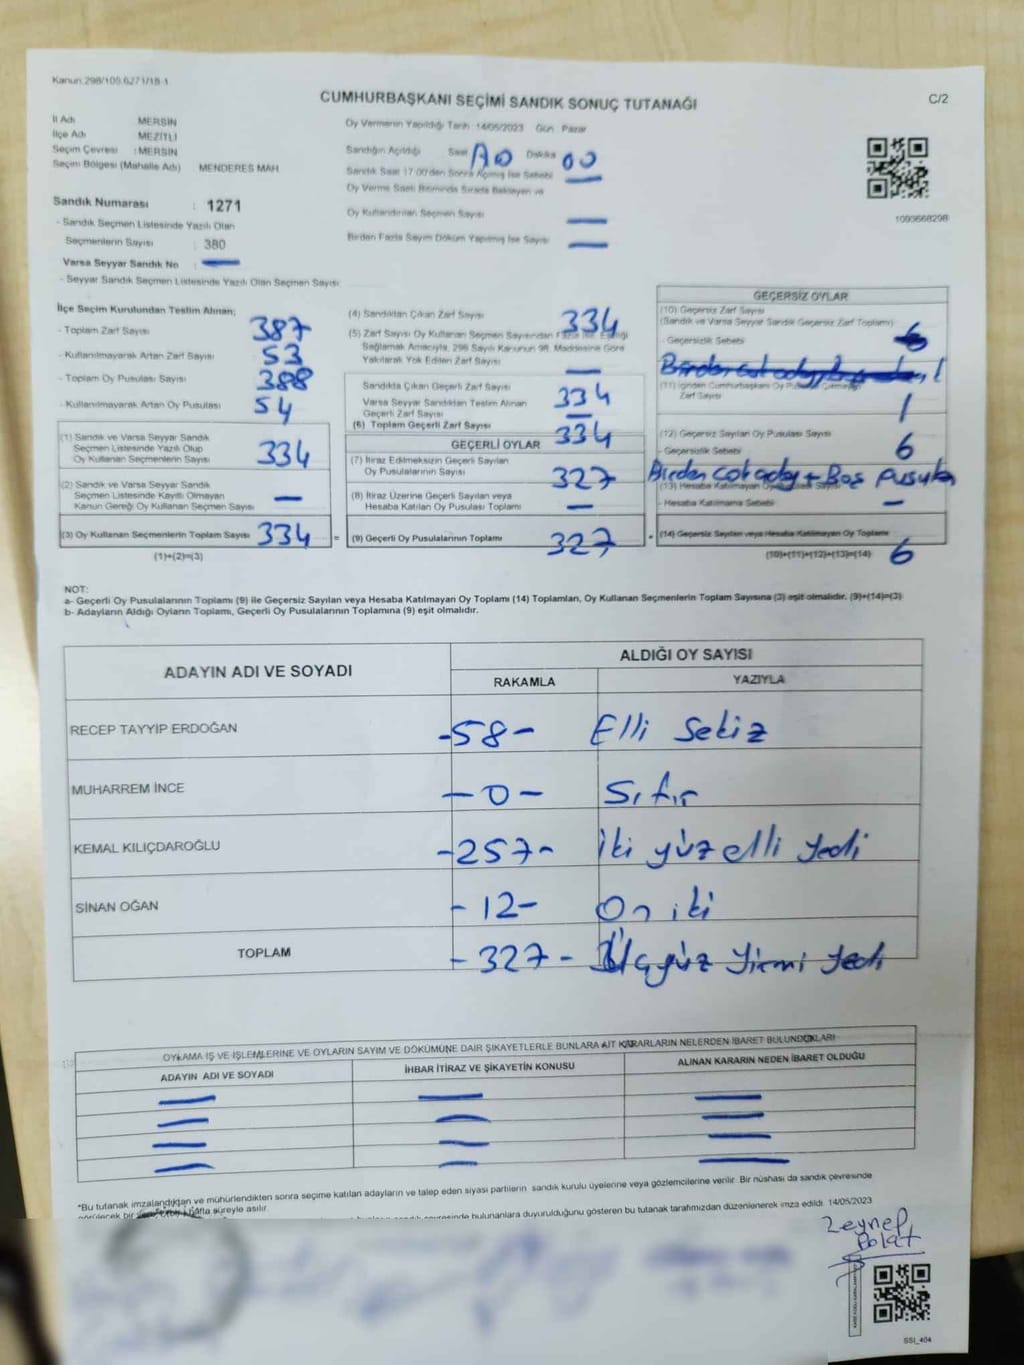 Kanun:298/105.6271/18-1
CUMHURBAŞKANI SEÇİMİ SANDIK SONUÇ TUTANAĞI
C/2
İl Adı MERSİN
İlçe Adı MEZİTLİ
Seçim Çevresi : MERSİN
Seçim Bölgesi (Mahalle Adı) MENDERES MAH.
Sandık Numarası : 1271
- Sandık Seçmen Listesinde Yazılı Olan
Seçmenlerin Sayısı : 380
Varsa Seyyar Sandık No :
- Seyyar Sandık Seçmen Listesinde Yazılı Olan Seçmen Sayısı:
Oy Vermenin Yapıldığı Tarih :14/05/2023 Gün Pazar
Sandığın Açıldığı Saat Dakika 00
Sandık Saat 17:00'den Sonra Açılmış İse Sebebi
Oy Verme Saati Bitiminde Sırada Bekleyen ve
Oy Kullandırılan Seçmen Sayısı
Birden Fazla Sayım Döküm Yapılmış İse Sayısı
1093668298
İlçe Seçim Kurulundan Teslim Alınan;
- Toplam Zarf Sayısı 387
- Kullanılmayarak Artan Zarf Sayısı 53
- Toplam Oy Pusulası Sayısı 388
- Kullanılmayarak Artan Oy Pusulası 54
(1) Sandık ve Varsa Seyyar Sandık
Seçmen Listesinde Yazılı Olup
Oy Kullanan Seçmenlerin Sayısı 334
(2) Sandık ve Varsa Seyyar Sandık
Seçmen Listesinde Kayıtlı Olmayan
Kanun Gereği Oy Kullanan Seçmen Sayısı –
(3) Oy Kullanan Seçmenlerin Toplam Sayısı 334 =
(1)+(2)=(3)
(4) Sandıktan Çıkan Zarf Sayısı 334
(5) Zarf Sayısı Oy Kullanan Seçmen Sayısından
Sağlamak Amacıyla, 298 Sayılı Kanunun 98. Maddesine Göre
Yakılarak Yok Edilen Zarf Sayısı –
Sandıkta Çıkan Geçerli Zarf Sayısı 334
Varsa Seyyar Sandıktan Teslim Alınan
Geçerli Zarf Sayısı –
(6) Toplam Geçerli Zarf Sayısı 334
GEÇERLİ OYLAR
(7) İtiraz Edilmeksizin Geçerli Sayılan
Oy Pusulalarının Sayısı 327
(8) İtiraz Üzerine Geçerli Sayılan veya
Hesaba Katılan Oy Pusulası Toplamı –
(9) Geçerli Oy Pusulalarının Toplamı 327 +
GEÇERSİZ OYLAR
(10) Geçersiz Zarf Sayısı
(Sandık ve Varsa Seyyar Sandık Geçersiz Zarf Toplamı)
- Geçersizlik Sebebi
(11) İçinden Cumhurbaşkanı Oy Pusulası Çıkmayan
Zarf Sayısı 1
(12) Geçersiz Sayılan Oy Pusulası Sayısı 6
- Geçersizlik Sebebi
Birden çok aday + Boş pusula
(13) Hesaba Katılmayan Oy Pusulası Sayısı
- Hesaba Katılmama Sebebi –
(14) Geçersiz Sayılan veya Hesaba Katılmayan Oy Toplamı
(10)+(11)+(12)+(13)=(14) 6
NOT:
a- Geçerli Oy Pusulalarının Toplamı (9) ile Geçersiz Sayılan veya Hesaba Katılmayan Oy Toplamı (14) Toplamları, Oy Kullanan Seçmenlerin Toplam Sayısına (3) eşit olmalıdır. (9)+(14)=(3)
b- Adayların Aldığı Oyların Toplamı, Geçerli Oy Pusulalarının Toplamına (9) eşit olmalıdır.
ADAYIN ADI VE SOYADI
ALDIĞI OY SAYISI
RAKAMLA YAZIYLA
RECEP TAYYİP ERDOĞAN -58- Elli Sekiz
MUHARREM İNCE -0- Sıfır
KEMAL KILIÇDAROĞLU -257- İki yüz elli yedi
SİNAN OĞAN -12- On iki
TOPLAM -327- Üçyüz Yirmi yedi
OYLAMA İŞ VE İŞLEMLERİNE VE OYLARIN SAYIM VE DÖKÜMÜNE DAİR ŞİKAYETLERLE BUNLARA AİT KARARLARIN NELERDEN İBARET BULUNDUKLARI
ADAYIN ADI VE SOYADI İHBAR İTİRAZ VE ŞİKAYETİN KONUSU ALINAN KARARIN NEDEN İBARET OLDUĞU
*Bu tutanak imzalandıktan ve mühürlendikten sonra seçime katılan adayların ve talep eden siyasi partilerin sandık kurulu üyelerine veya gözlemcilerine verilir. Bir nüshası da sandık çevresinde
görülecek bir hafta süreyle asılır.
bulunanlara duyurulduğunu gösteren bu tutanak tarafımızdan düzenlenerek imza edildi. 14/05/2023
Zeynep
Polat
SSI_404